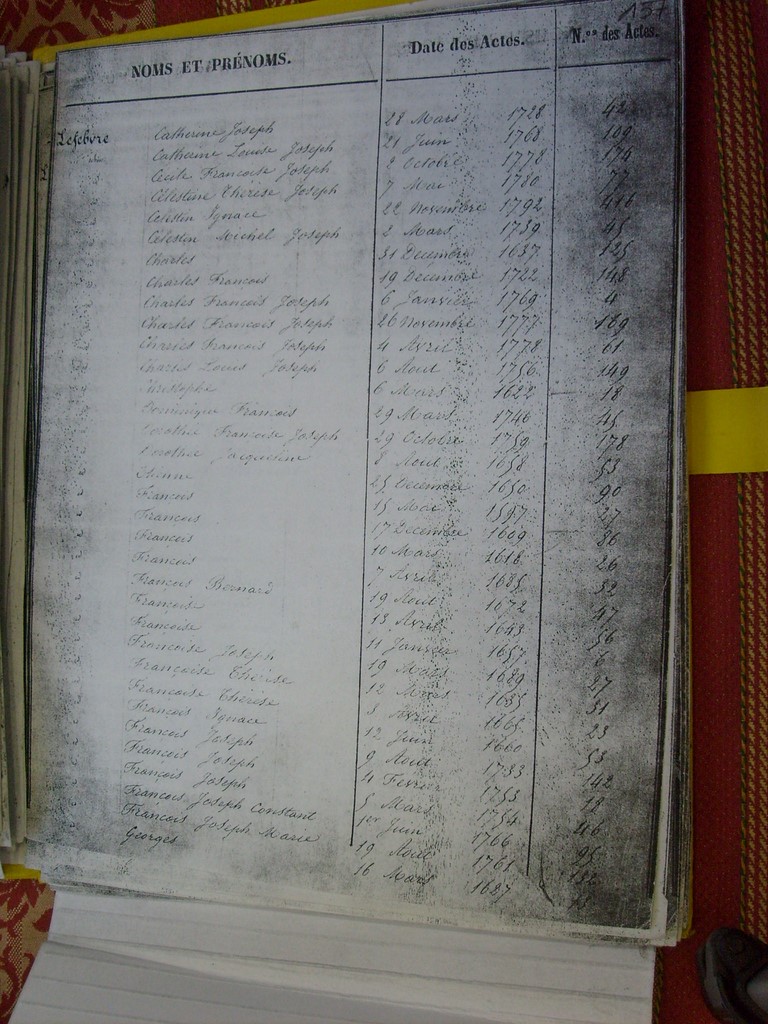 137
NOMS ET PRÉNOMS. Date des Actes. N.os des Actes.
Lefebvre Catherine Joseph 28 Mars 1728 42
Catherine Louise Joseph 21 Juin 1768 109
Cecile Francoise Joseph 2 Octobre 1778 174
Célestine Thérèse Joseph 7 Mai 1780 77
Celestin Ignace 22 Novembre 1792 416
Célestin Michel Joseph 2 Mars 1739 45
Charles 31 Decembre 1637 125
Charles Francois 19 Decembre 1722 148
Charles Francois Joseph 6 Janvier 1769 4
Charles Francois Joseph 26 Novembre 1777 189
Charles Francois Joseph 4 Avril 1778 61
Charles Louis Joseph 6 Aout 1756 149
Christophe 6 Mars 1622 18
Dominique Francois 29 Mars 1746 45
Dorothée Francoise Joseph 29 Octobre 1759 178
Dorothée Jacqueline 8 Aout 1658 53
Etienne 25 Decembre 1650 90
Francois 15 Mai 1597 27
Francois 17 Decembre 1609 86
Francois 10 Mars 1616 26
Francois 7 Avril 1685 32
Francois Bernard 19 Aout 1672 47
Francoise 13 Avril 1643 56
Francoise 11 Janvier 1657 6
Francoise Joseph 19 Mars 1689 27
Francoise Thérèse 12 Mars 1635 31
Francoise Thérèse 3 Avril 1665 23
Francois Ignace 12 Juin 1660 53
Francois Joseph 9 Aout 1733 142
Francois Joseph 4 Fevrier 1753 18
Francois Joseph 5 Mars 1754 46
Francois Joseph Constant 1er Juin 1766 95
Francois Joseph Marie 19 Aout 1761 132
Georges 16 Mars 1627